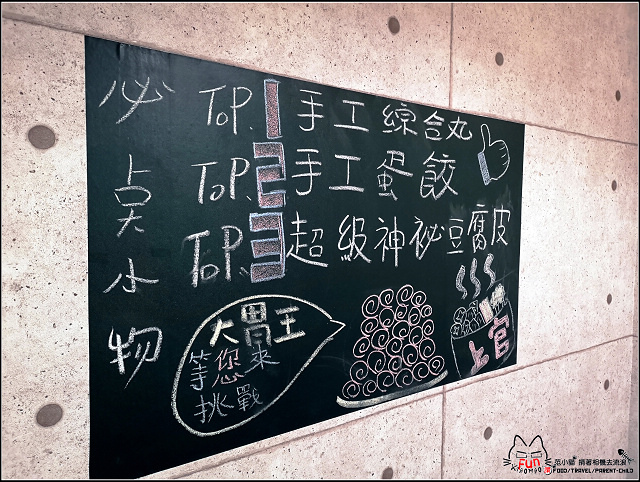 必点小物
TOP.1 手工綜合丸
TOP.2 手工蛋餃
TOP.3 超級神祕豆腐皮
大胃王
等您來
挑戰
上官
Fun
范小貓 揹著相機去流浪
FOOD/TRAVEL/PARENT-CHILD